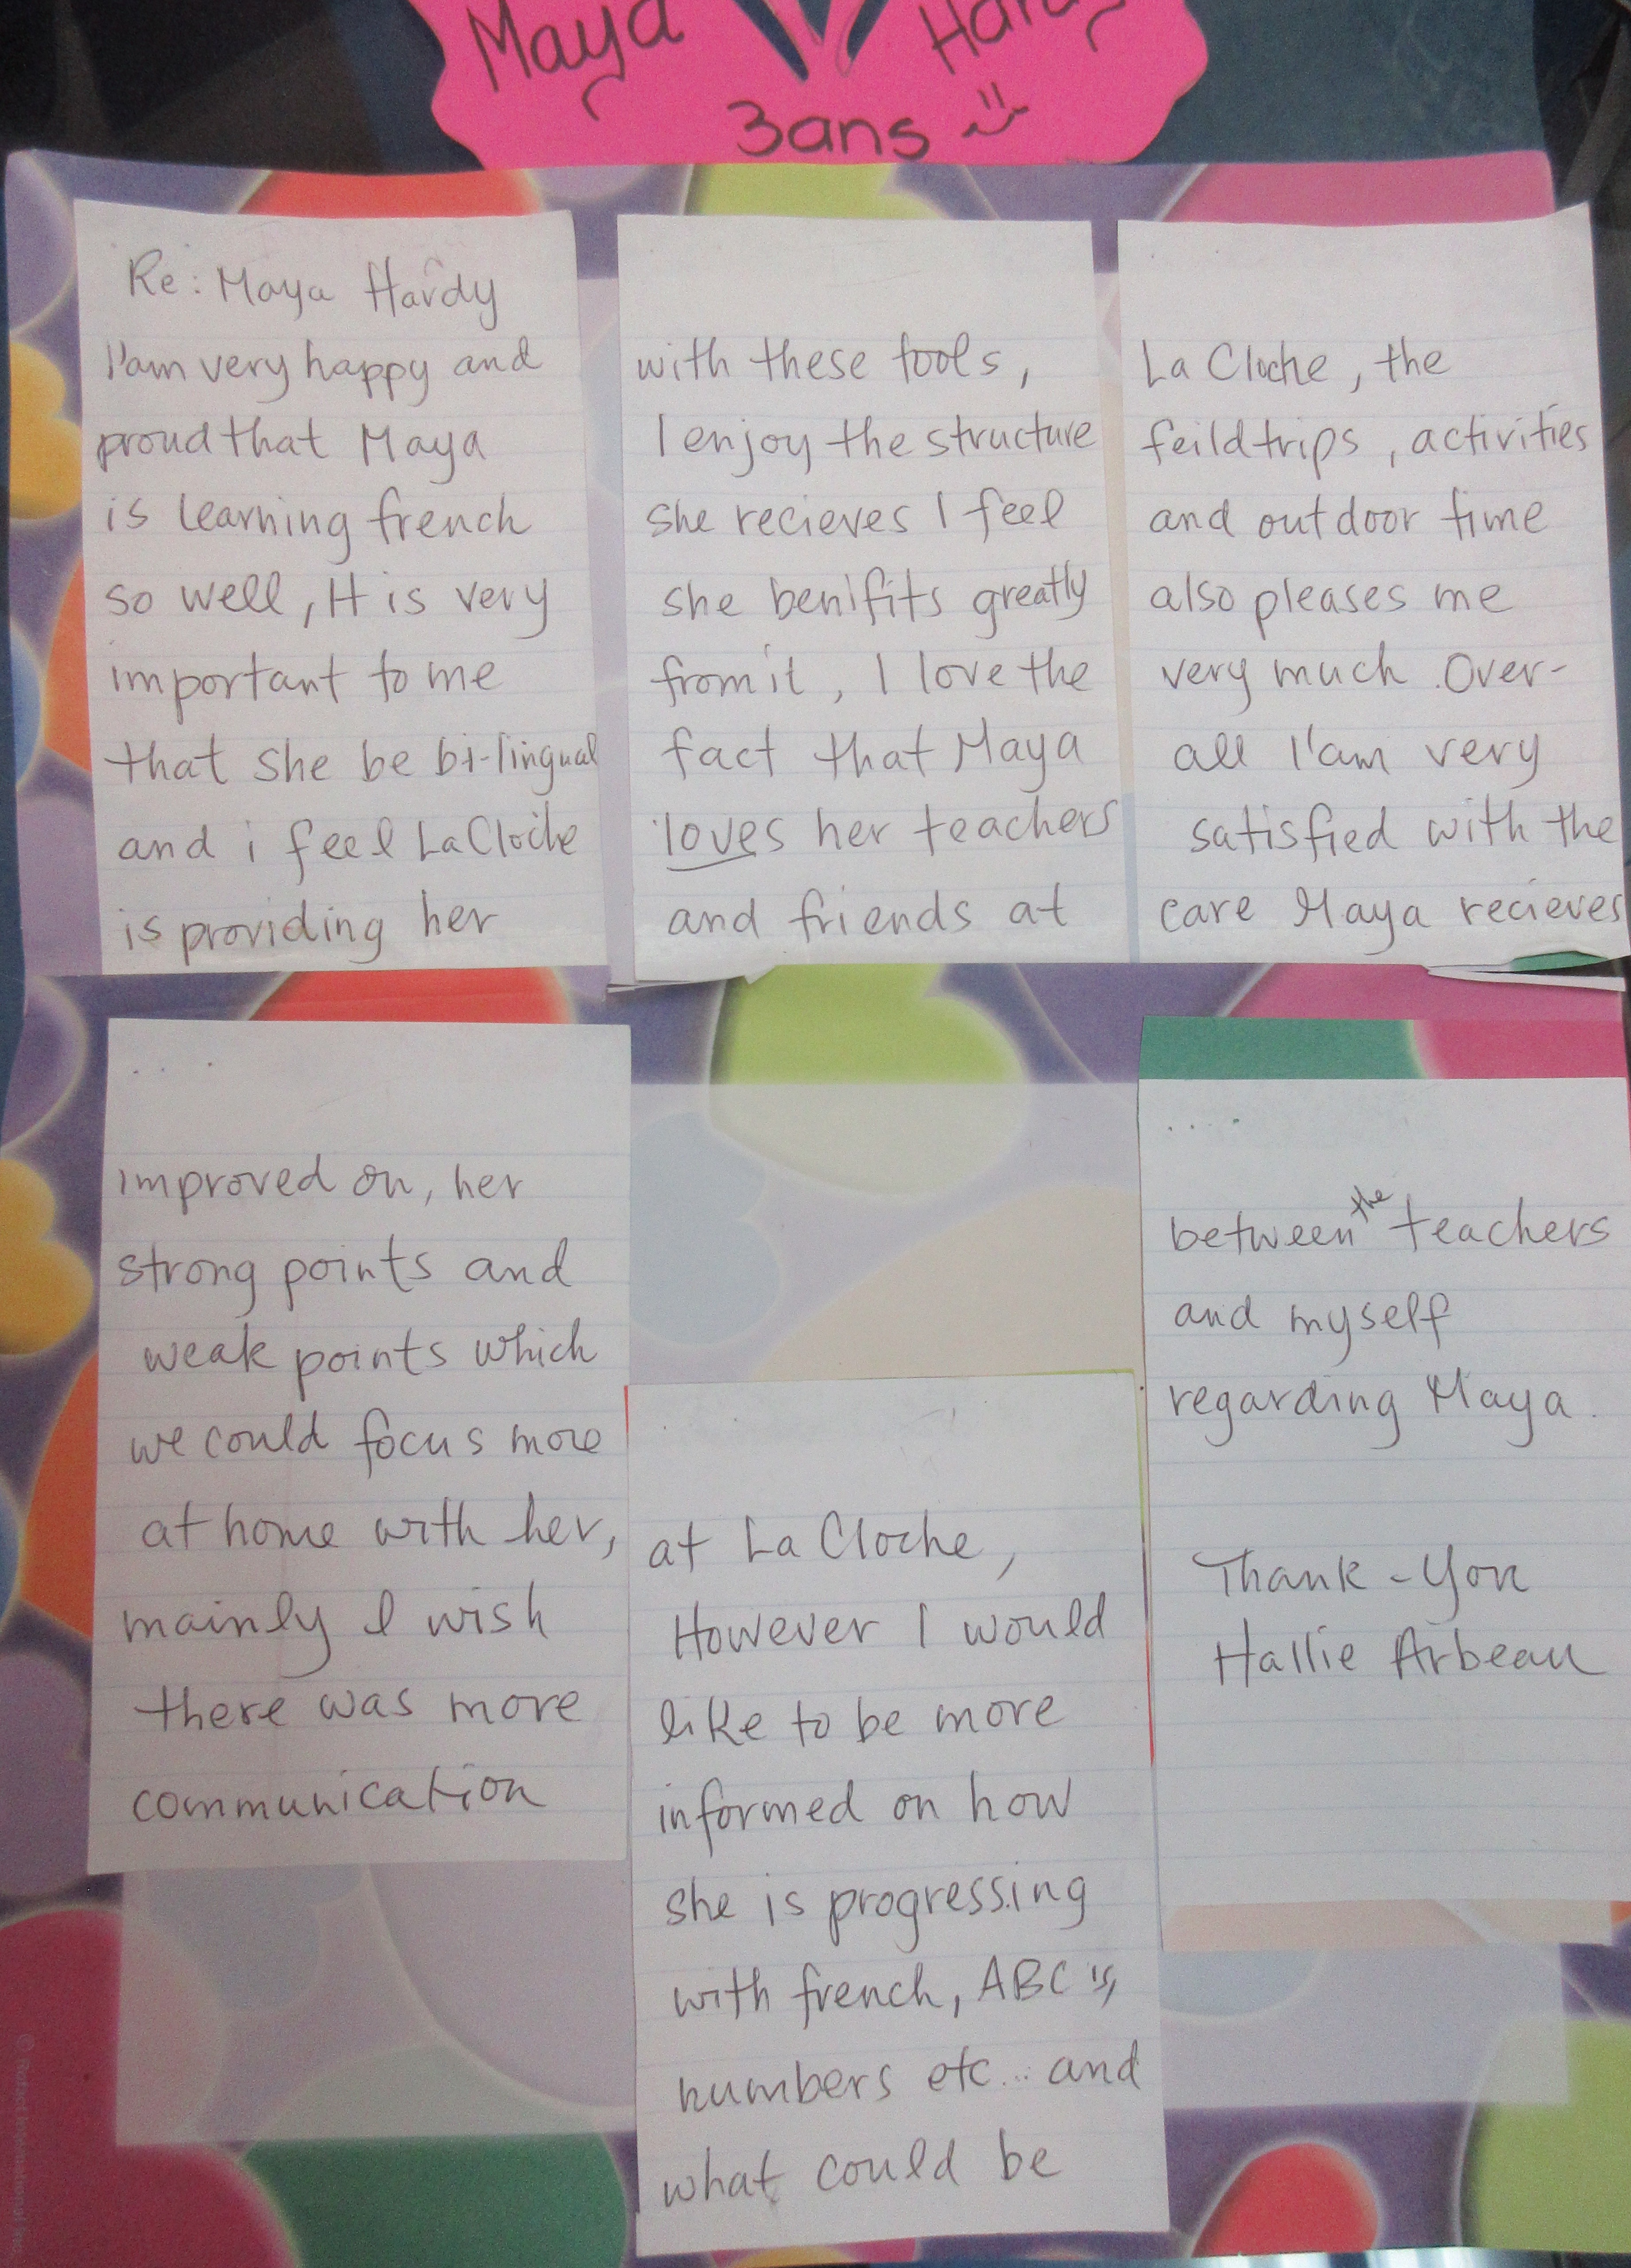 Maya
3ans
Re: Maya Hardy
I'am very happy and
proud that Maya
is learning french
so well, It is very
important to me
that she be bi-lingual
and i feel La Cloche
is providing her
with these tools,
I enjoy the structure
she recieves I feel
she benifits greatly
from it, I love the
fact that Maya
loves her teachers
and friends at
La Cloche, the
feildtrips, activities
and outdoor time
also pleases me
very much. Over-
all I'am very
satisfied with the
care Maya recieves
at La Cloche,
However I would
like to be more
informed on how
she is progressing
with french, ABC's,
numbers etc... and
what could be
improved on, her
strong points and
weak points which
we could focus more
at home with her,
mainly I wish
there was more
communication
between the teachers
and myself
regarding Maya.
Thank-You
Hallie Arbeau